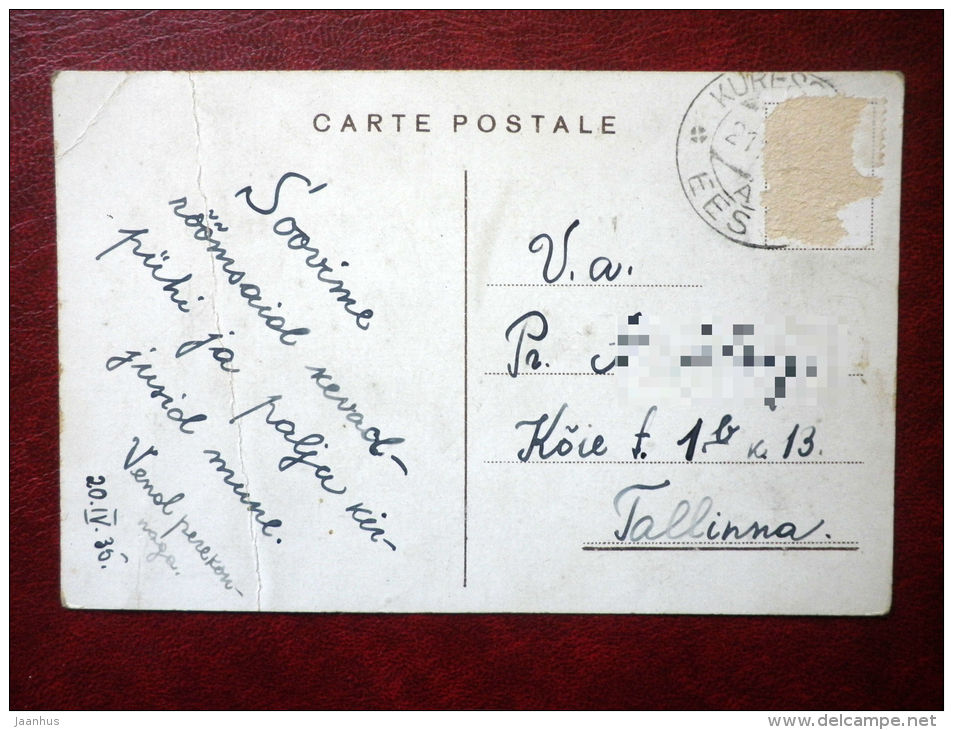 CARTE POSTALE
Soovime
rõõmsaid kevad-
pühi ja palju kir-
jusid mune.
Vend perekon-
naga.
20.IV.35.
KURES
21
A
EES
V.a.
Pr.
Kõie t. 1b k. 13.
Tallinna.
Jaanhus
www.delcampe.net